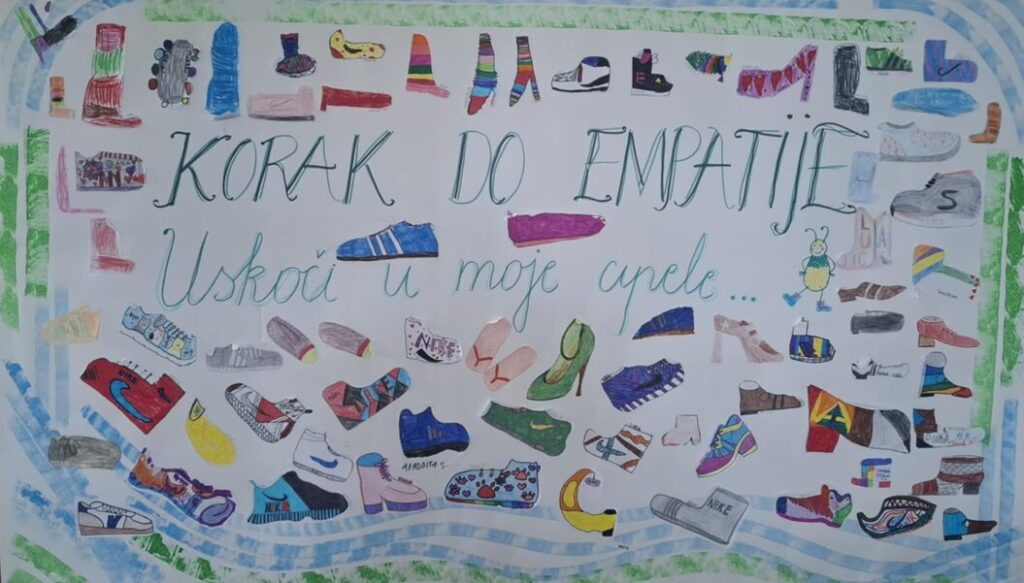 KORAK DO EMPATIJE
Uskoči u moje cipele...
E
S
LUA
NIKE
NIKE
AFRODITA S.
LANA
NIKE
NIKE